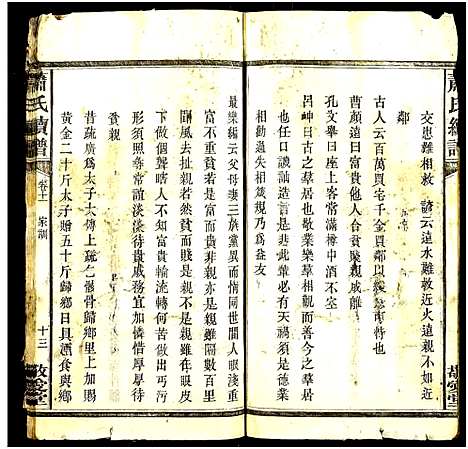 交患難相救　諺云遠水難救近火遠親不如近
鄰
古人云百萬買宅千金買鄰
曹顏遠曰富貴他人合貧賤親戚離
孔文舉曰座上客常滿樽中酒不空
呂坤曰古之羣居也敬業樂羣相觀而善今之羣居
也任口譏訕造言生非此輩必有天禍須是德業
相勸過失相箴規乃爲益友
最樂編云父母妻三族黨異而情同世間人眼淺重
富而不重貧若是富而貴非親亦是親雖隔數百里
閧風去扯親若然貧而賤是親不是親雖在眼皮
下做個聲啥人不知富貴能流轉何苦做出丐污
形須照尋常誼淡淡待貴戚務宜加憐惜厚厚待
貧親
昔疏廣爲太子太傅上疏乞骸骨歸鄉里上加賜
黃金二十斤太子贈五十斤歸鄉日具酒食與鄉
蕭氏續譜
卷十一
家訓
十三
敬愛堂